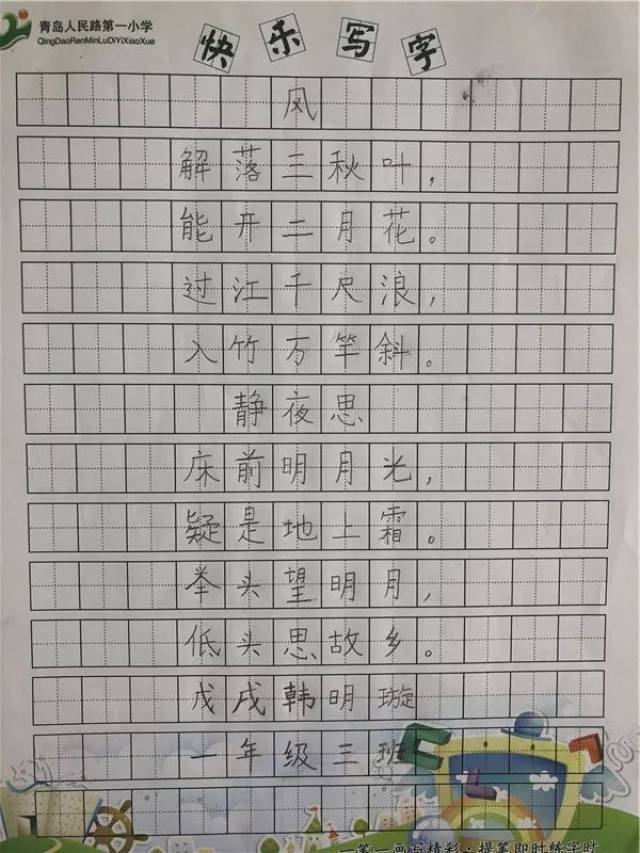 青岛人民路第一小学
QingDaoRenMinLuDiYiXiaoXue
快乐写字
风
解落三秋叶，
能开二月花。
过江千尺浪，
入竹万竿斜。
静夜思
床前明月光，
疑是地上霜。
举头望明月，
低头思故乡。
戊戌韩明璇
一年级三班
一笔一画写精彩·提笔即时练字时